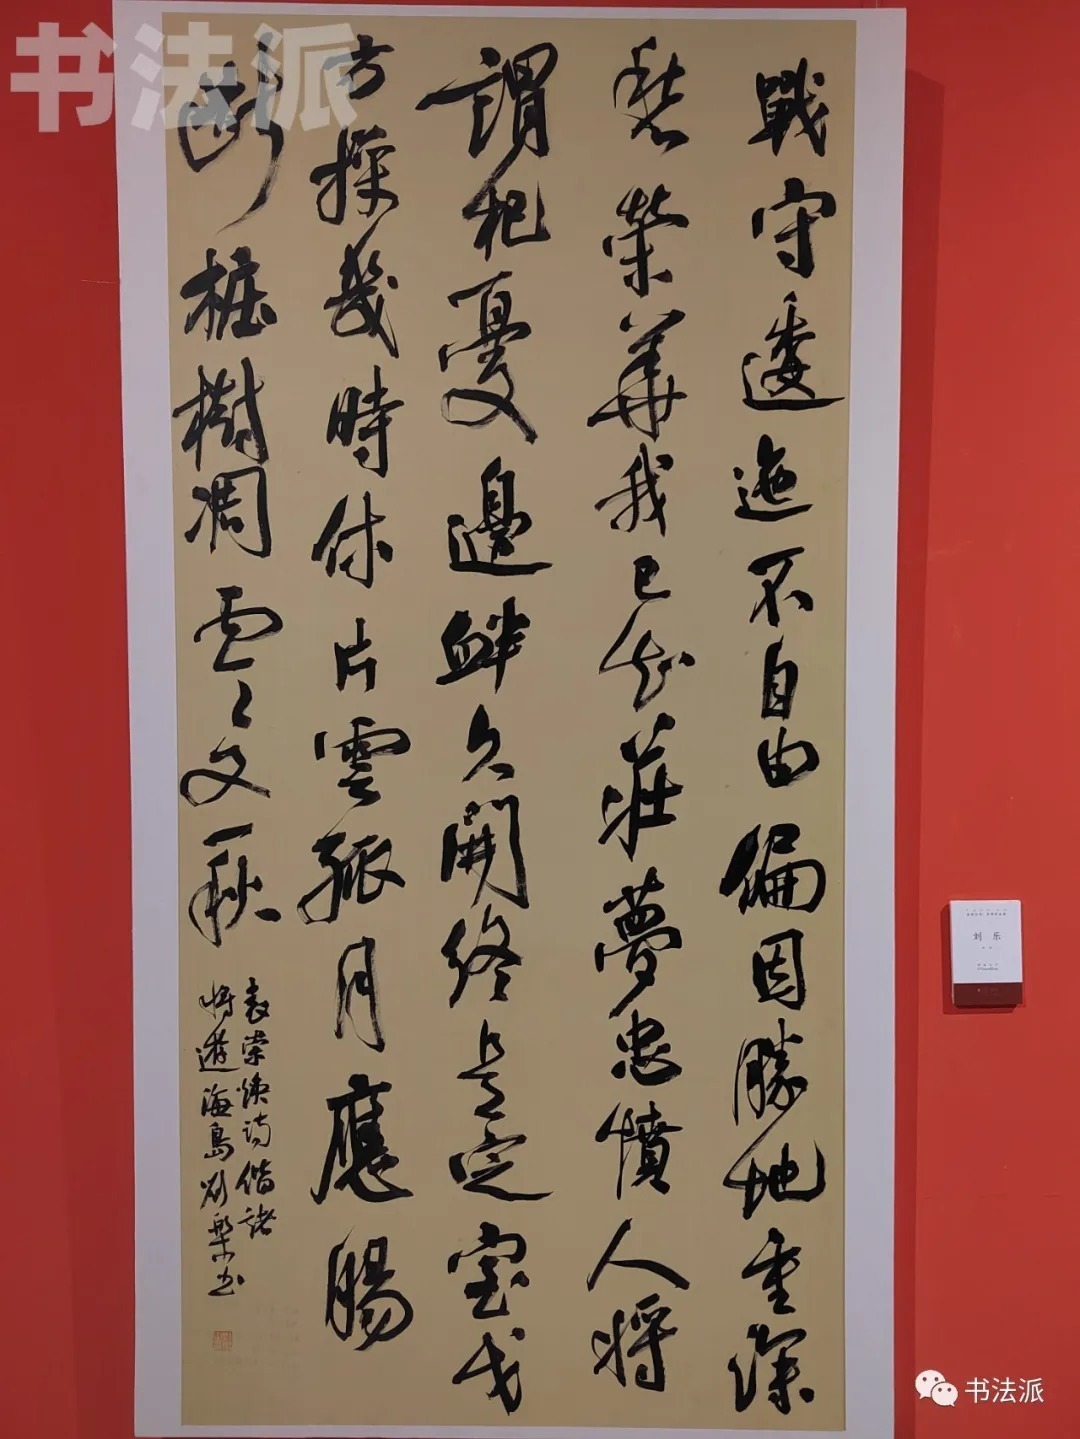 书法派
戰守逶迤不自由偏因勝地重深
愁榮華我已知莊夢忠憤人將
謂杞憂邊衅久開終是定室戈
方操幾時休片雲孤月應腸
斷樁樹凋零又一秋
袁崇煥詩偕諸
將遊海島劉樂書
刘 乐
书法派